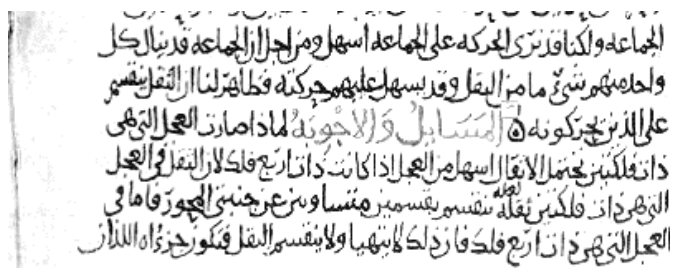 الجماعه ولكنا قد نرى الحركه على الجماعه اسهل ومن اجل ان الجماعه قد ينال كل
واحد منهم شئ ما من الثقل وقد يسهل عليهم حركته فظاهر لنا ان الثقل ينقسم
على الذين يحركونه ۵ المسايل والاجوبه لماذا صارت العجل التى هى
ذات فلكتين يحتمل الاثقال اسهل من العجل اذا كانت ذات اربع فلك لان الثقل فى العجل
التى هى ذات فلكتين ثقله ينقسم بقسمين متساويين عن جنبتى المحور فاما فى
العجل التى هى ذات اربع فلك فان ذلك لا يتهيا ولا ينقسم الثقل فيكون جزءاه اللذان